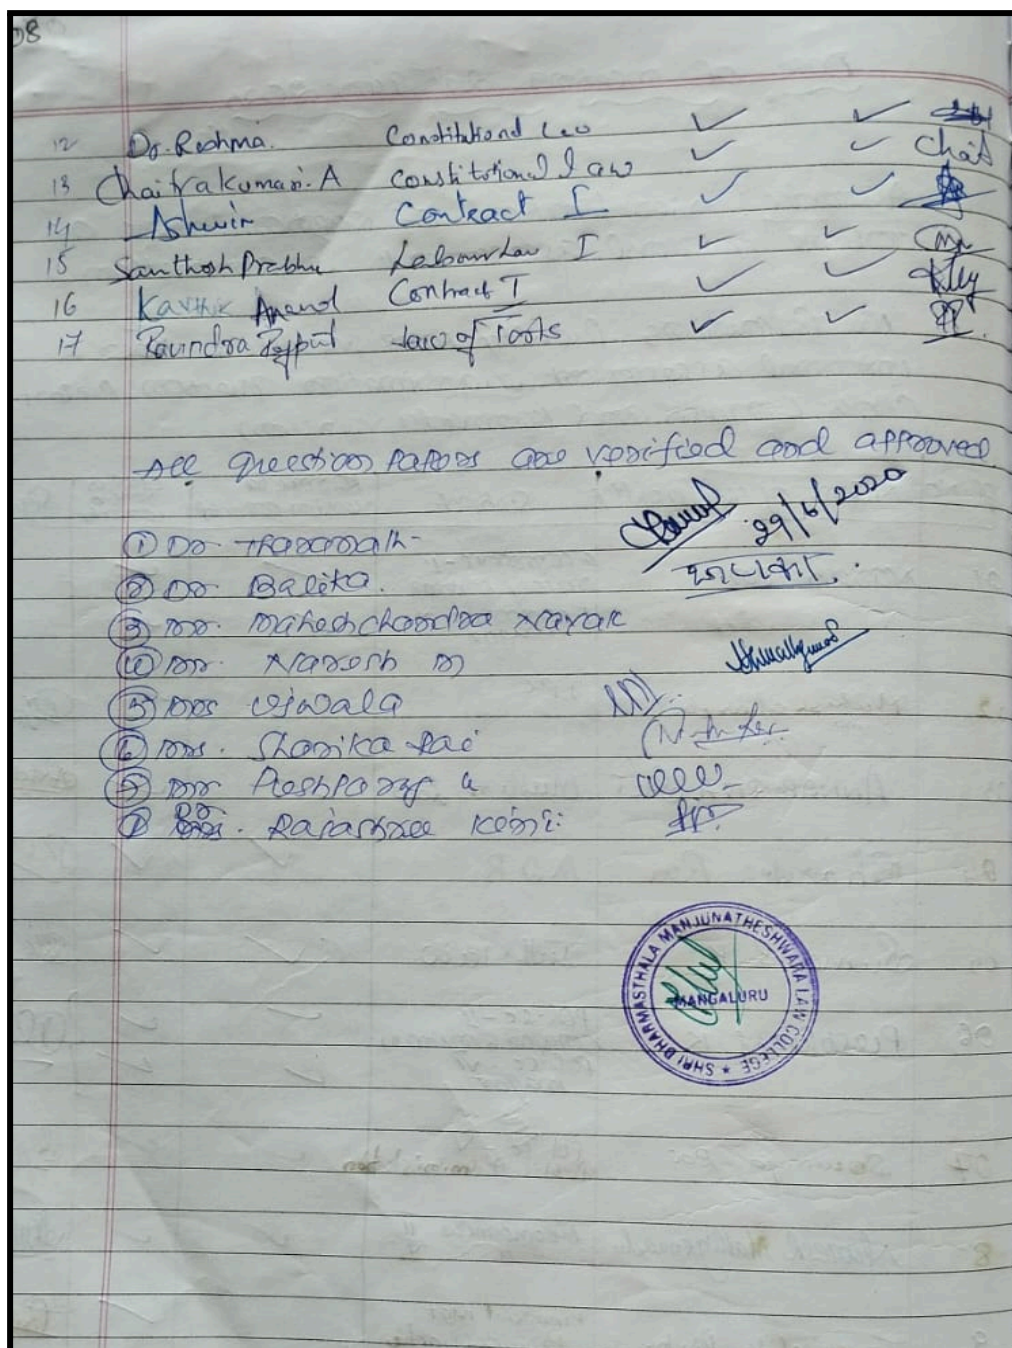 08
12 Dr. Reshma. Constitutional Law ✓ ✓
13 Chaitrakumari. A Constitutional Law ✓ ✓ Chai
14 Ashwin Contract I ✓ ✓
15 Santhosh Prabhu Labour Law I ✓ ✓
16 Karthik Anand Contract I ✓ ✓
17 Ravindra Rajput Law of Torts ✓ ✓
All question papers are verified and approved
29/6/2020
① Dr. Tharanath
② Dr. Balika.
③ Mr. Maheshchandra Nayak
④ Mr. Naresh M
⑤ Mrs Ujwala
⑥ Mrs. Sharika Rai
⑦ Mr Pushparaj K
Rajashree
SHRI DHARMASTHALA MANJUNATHESHWARA LAW COLLEGE ★
MANGALURU